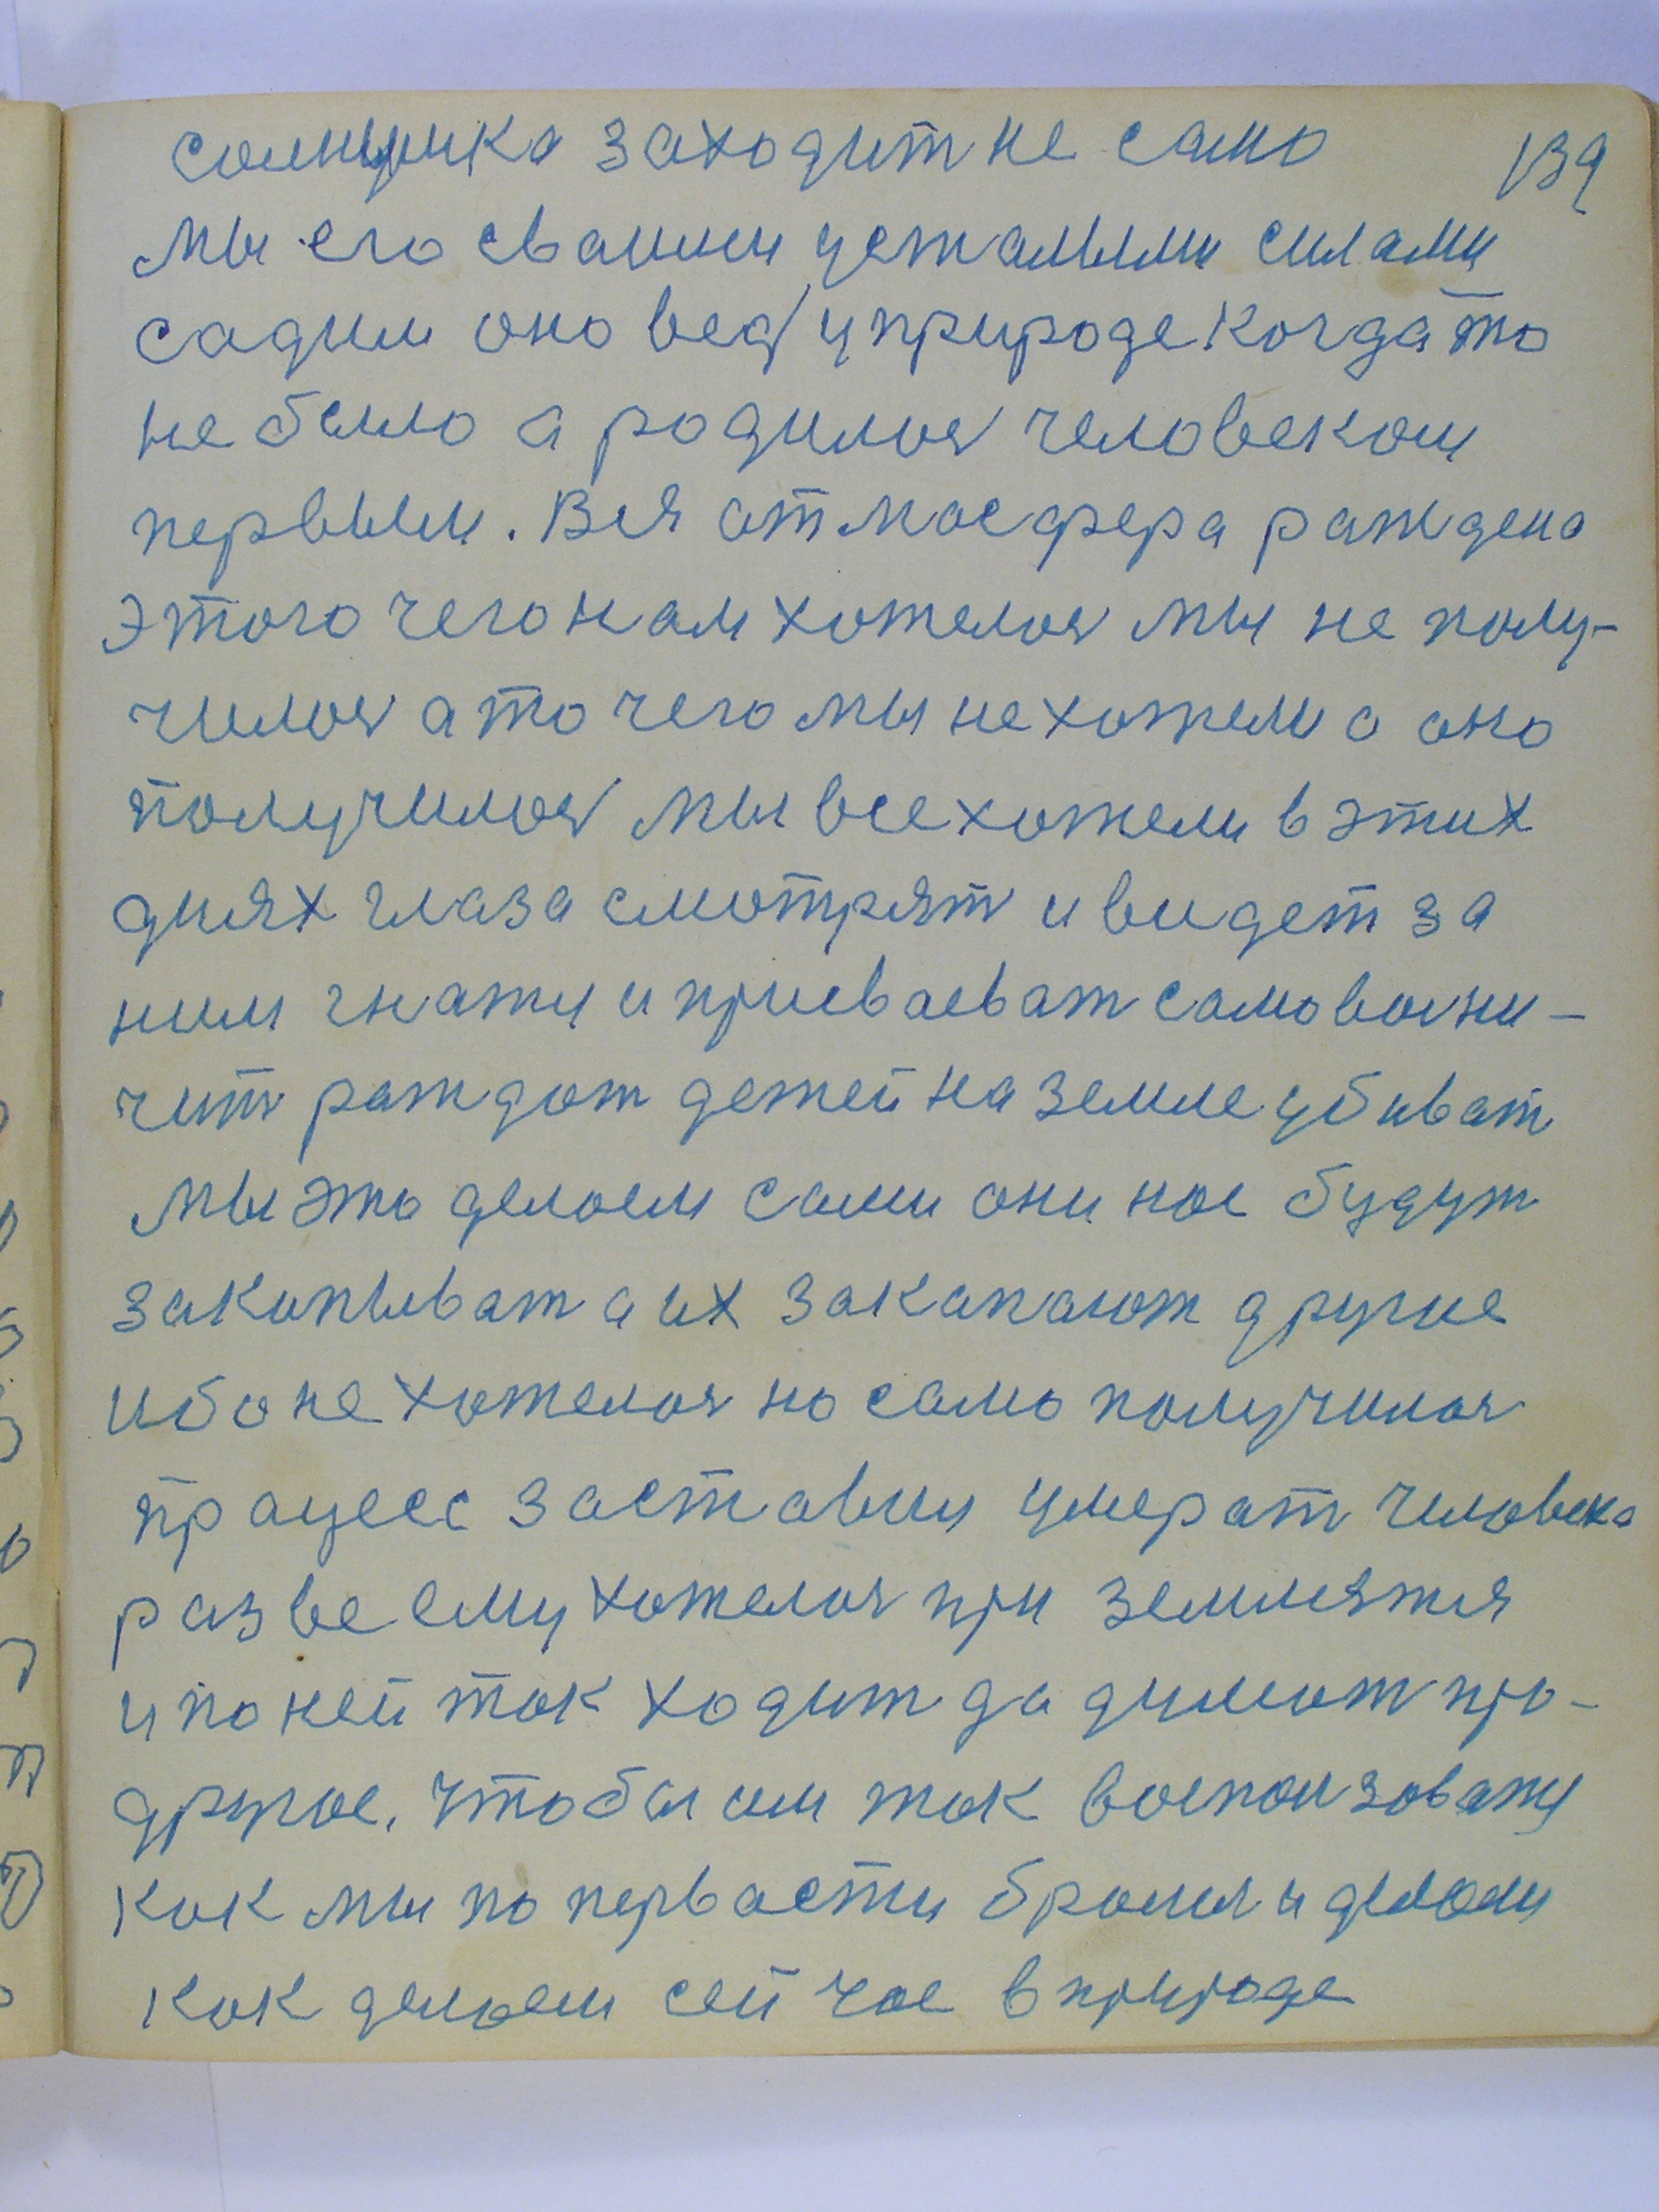 солнушка заходит не само 139
мы его своими усталыми силами
садим оно вед у природе когда то
не было а родилос человеком
первым. Вся атмосфера раждена
этого чего нам хотелос мы не полу-
чилос а то чего мы не хотели а оно
получилос мы все хотели в этих
днях глаза смотрят и видет за
ним гнати и присваеват самовольни-
чит раждат детей на земле убиват
мы это делаем сами они нас будут
закопыват а их закапают другие
ибо не хотелос но само получилос
працесс заставил умерат человека
разве ему хотелос при
и по ней так ходит да думат про-
другое. Чтобы им так
как мы по первасти брали и делали
как делаем сей час в природе